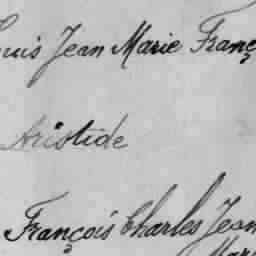 Louis Jean Marie Franç
Aristide
François Charles Jean
Mari